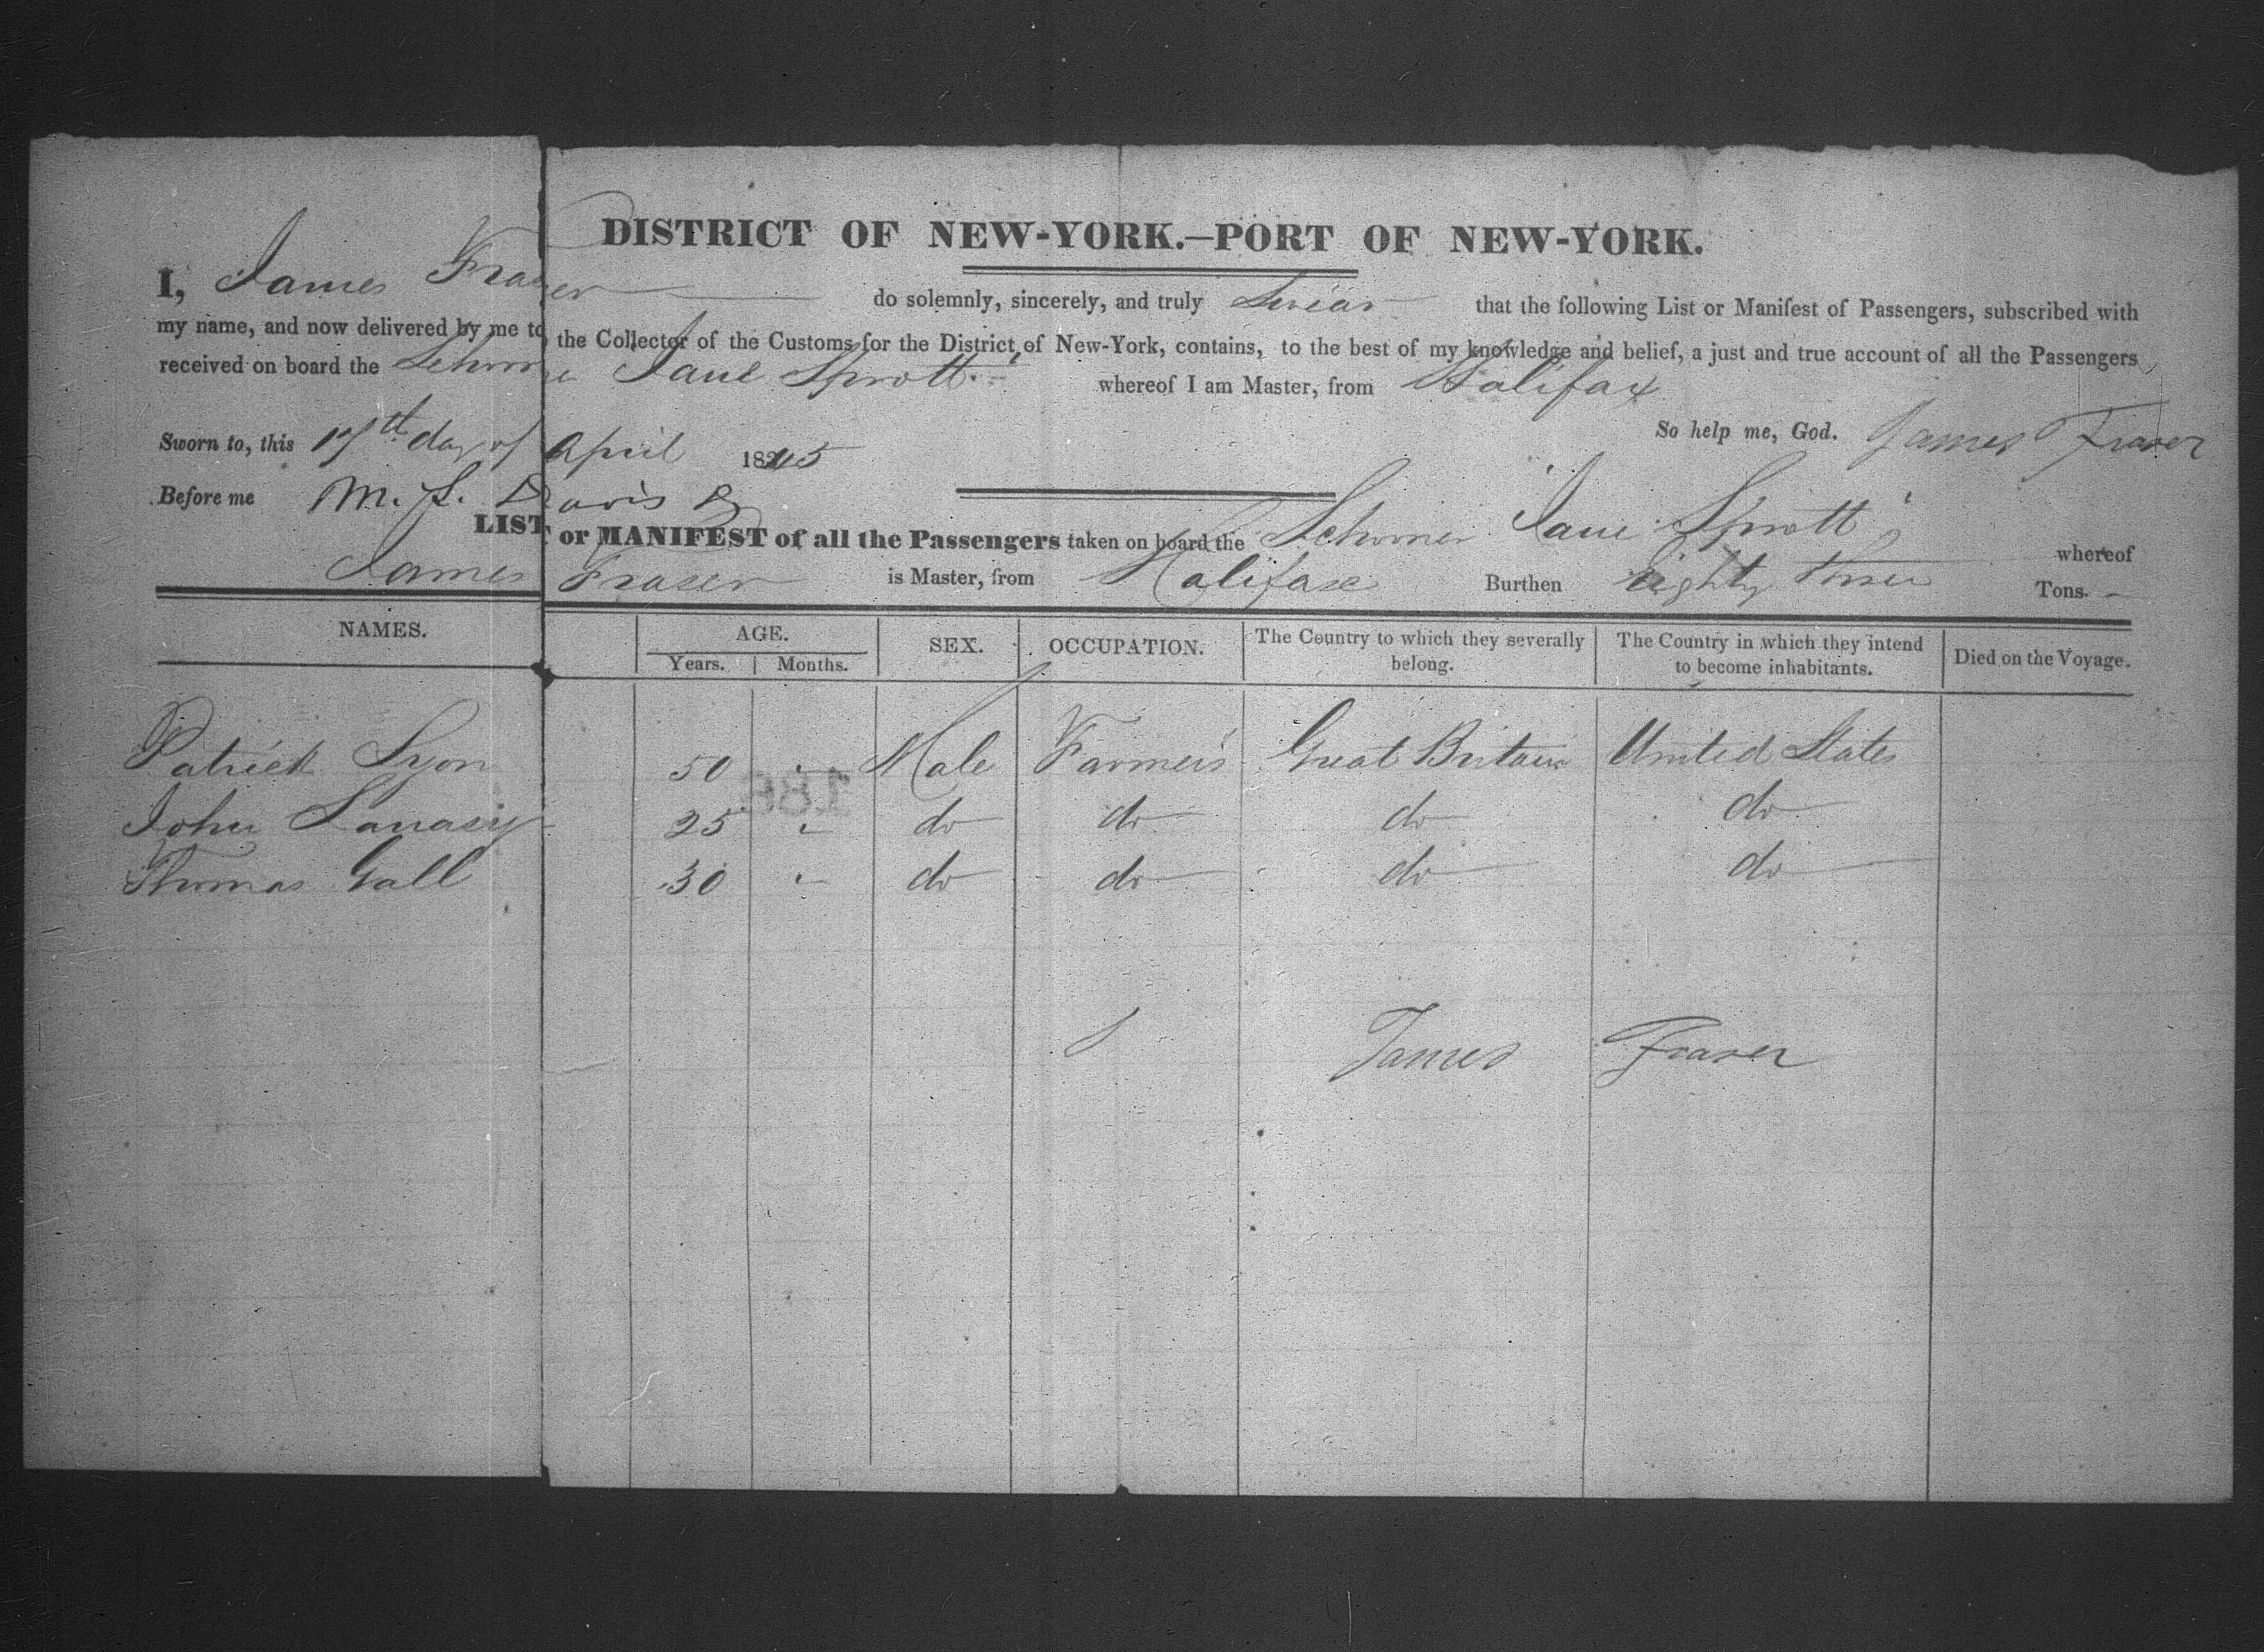 DISTRICT OF NEW-YORK.—PORT OF NEW-YORK.
I, James Fraser do solemnly, sincerely, and truly Swear that the following List or Manifest of Passengers, subscribed with
my name, and now delivered by me to the Collector of the Customs for the District of New-York, contains, to the best of my knowledge and belief, a just and true account of all the Passengers
received on board the Schooner Jane Sprott whereof I am Master, from Halifax
So help me, God. James Fraser
Sworn to, this 17th day of April 1845
Before me M. L. Davis
LIST or MANIFEST of all the Passengers taken on board the Schooner "Jane Sprott" whereof
James Fraser is Master, from Halifax Burthen Eighty Three Tons.
NAMES. AGE. SEX. OCCUPATION. The Country to which they severally belong. The Country in which they intend to become inhabitants. Died on the Voyage.
Years. Months.
Patrick Lyon 50 " Male Farmers Great Britain United States
John 25 " do do do do
Thomas Gall 30 " do do do do
James Fraser